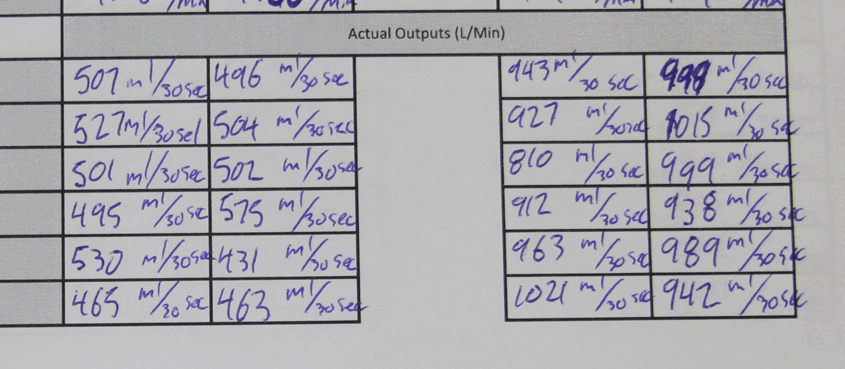 Actual Outputs (L/Min)
507 ml/30sec 496 ml/30sec 943 ml/30 sec 999 ml/30sec
527ml/30sel 504 ml/30sec 927 ml/30sec 1015 ml/30 sec
501 ml/30sec 502 ml/30sec 810 ml/30 sec 999 ml/30sec
495 ml/30 sec 575 ml/30sec 912 ml/30 sec 938 ml/30 sec
530 ml/30sec 431 ml/30sec 963 ml/30sec 989 ml/30sec
465 ml/30 sec 463 ml/30sec 1021 ml/30 sec 942 ml/30sec